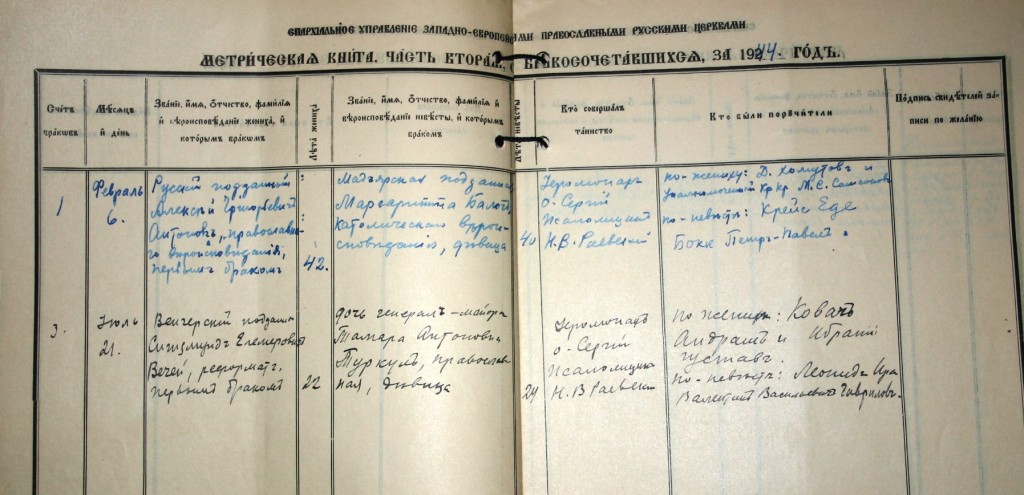 ЕПАРХІАЛЬНОЕ УПРАВЛЕНІЕ ЗАПАДНО-ЕВРОПЕЙСКИМИ ПРАВОСЛАВНЫМИ РУССКИМИ ЦЕРКВАМИ
МЕТРИЧЕСКАЯ КНИГА. ЧАСТЬ ВТОРАЯ, БРАКОСОЧЕТАВШИХСЯ, ЗА 1944. ГОДЪ.
Счётъ
браковъ
Мѣсяцъ
и день
Званіе, имя, отчество, фамилія
и вѣроисповѣданіе жениха, и
которымъ бракомъ
Лѣта жениха
Званіе, имя, отчество, фамилія и
вѣроисповѣданіе невѣсты, и которымъ
бракомъ
Кто совершалъ
таинство
Кто были поручители
Подпись свидѣтелей за-
писи по желанію
1
Февраль
6.
Русскій подданный
Алексѣй Григорьевичъ
Антоновъ, православна-
го вѣроисповѣданія,
первымъ бракомъ
42.
Мадьярская подданная
Маргаритта Балогъ,
католическаго вѣрои-
сповѣданія, дѣвица
40
Іеромонахъ
о. Сергій
Псаломщикъ
Н. В. Раевскій
по-жениху: Д. Хомутовъ и
М. С.
по-невѣстѣ: Крейс Еде
Бокк Петръ-Павелъ.
3.
Іюль
21.
Венгерскій поддан.
Сигизмундъ Елемеровичъ
Вечей, реформат.,
первымъ бракомъ
22
дочь генералъ-майора
Тамара Антоновна
Туркулъ, православ-
ная, дѣвица
24
Іеромонахъ
о. Сергій
Псаломщикъ
Н. В Раевскій
по жениху: Ковачъ
Андрашъ и
Густавъ.
по-невѣстѣ: Леонидъ
Валентинъ Васильевичъ Гавриловъ.